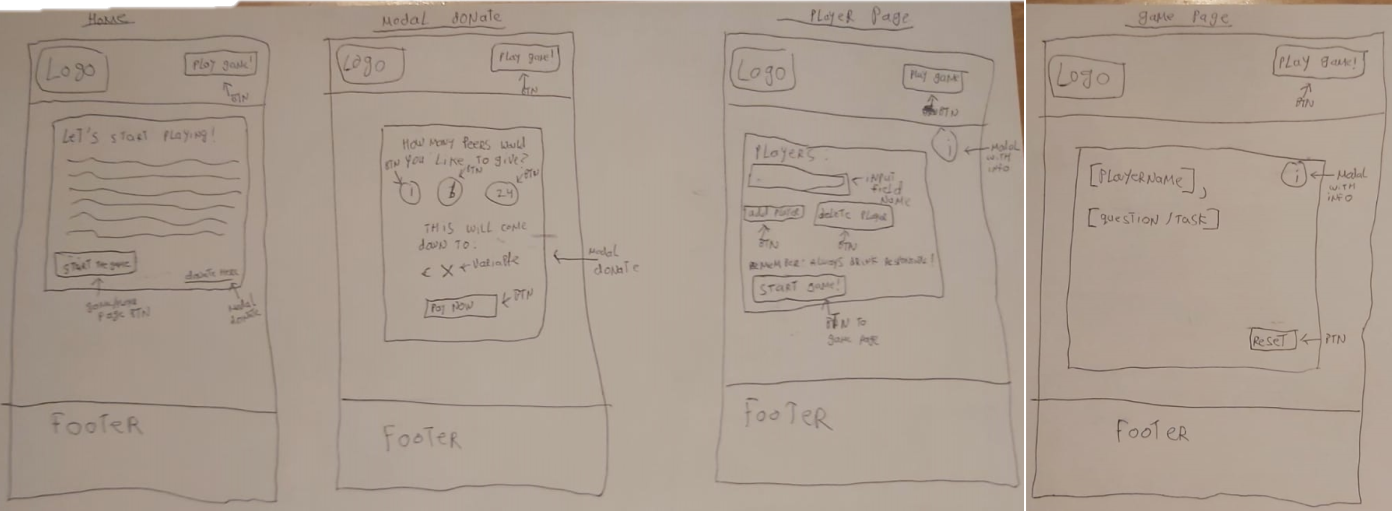 Home
Logo
Play game!
BTN
Let's start playing!
START the game
donate here
game/rules
page BTN
Modal
donate
Footer
Modal donate
Logo
Play game!
BTN
How many beers would
you like to give?
BTN
BTN
BTN
1
6
24
THIS will come
down to:
€ X
Variable
Pay now
BTN
Modal
donate
Footer
Player Page
Logo
Play game
BTN
i
Modal
with
info
Players.
input
field
name
add player
delete player
BTN
BTN
Remember: always drink responsible!
START game!
BTN to
game page
Footer
game Page
Logo
Play game!
BTN
[PLAYERNAME],
i
Modal
with
info
[question / TASK]
Reset
BTN
Footer